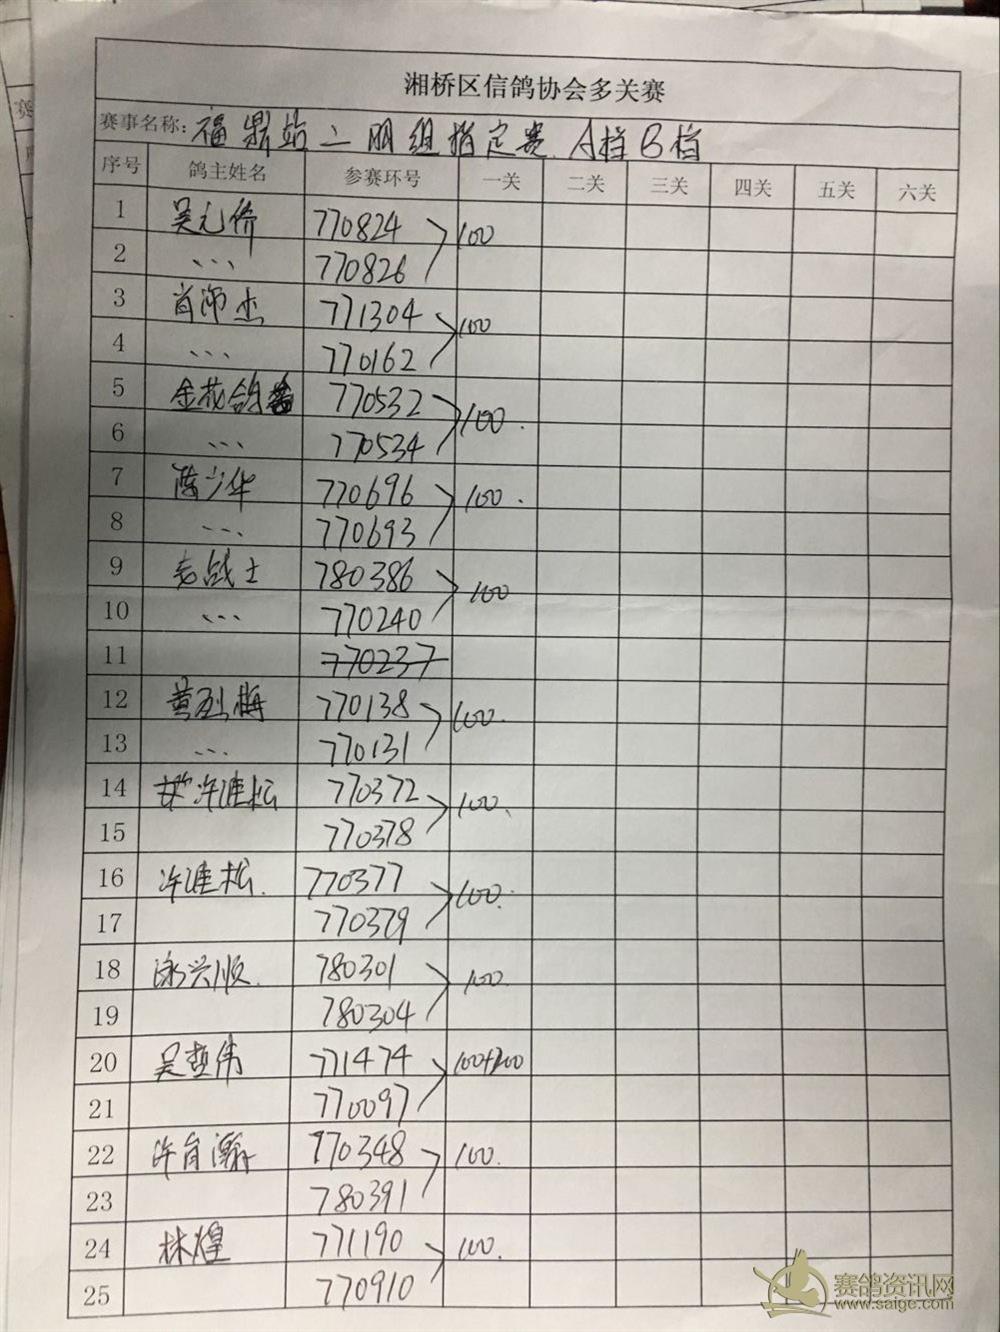 湘桥区信鸽协会多关赛
赛事名称: 福鼎站二朋组指定赛 A档B档
序号 鸽主姓名 参赛环号 一关 二关 三关 四关 五关 六关
1 吴元侨 770824 100
2 、、、 770826
3 肖沛杰 771304 100
4 、、、 770162
5 金花鸽 770532 100.
6 、、、 770534
7 陈少华 770696 100.
8 、、、 770693
9 老战士 780386 100
10 、、、 770240
11 770237
12 黄烈梅 770138 100.
13 、、、 770131
14 许淮松 770372 100.
15 770378
16 许淮松. 770377 100.
17 770379
18 永兴顺. 780301 100.
19 780304
20 吴哲伟 771474 100+100
21 770097
22 许育瀚 770348 100.
23 780391
24 林煌 771190 100.
25 770910
赛鸽资讯网
www.saige.com